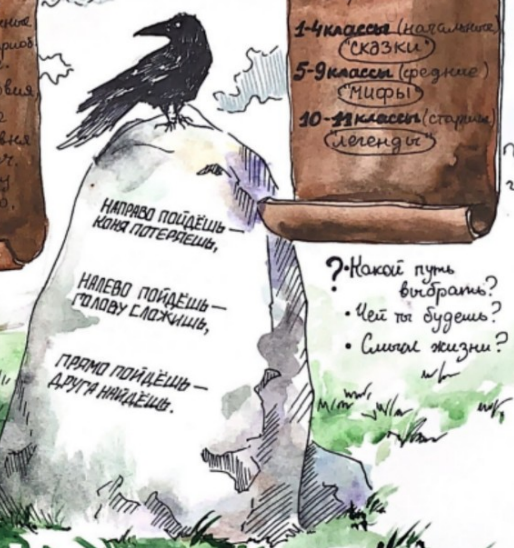 1-4 классы (начальные)
"сказки"
5-9 классы (средние)
"мифы"
10-11 классы (старшие)
"легенды"
НАПРАВО ПОЙДЁШЬ —
КОНЯ ПОТЕРЯЕШЬ,
НАЛЕВО ПОЙДЁШЬ —
ГОЛОВУ СЛОЖИШЬ,
ПРЯМО ПОЙДЁШЬ —
ДРУГА НАЙДЁШЬ.
? • Какой путь
выбрать?
• Чей ты будешь?
• Смысл жизни?